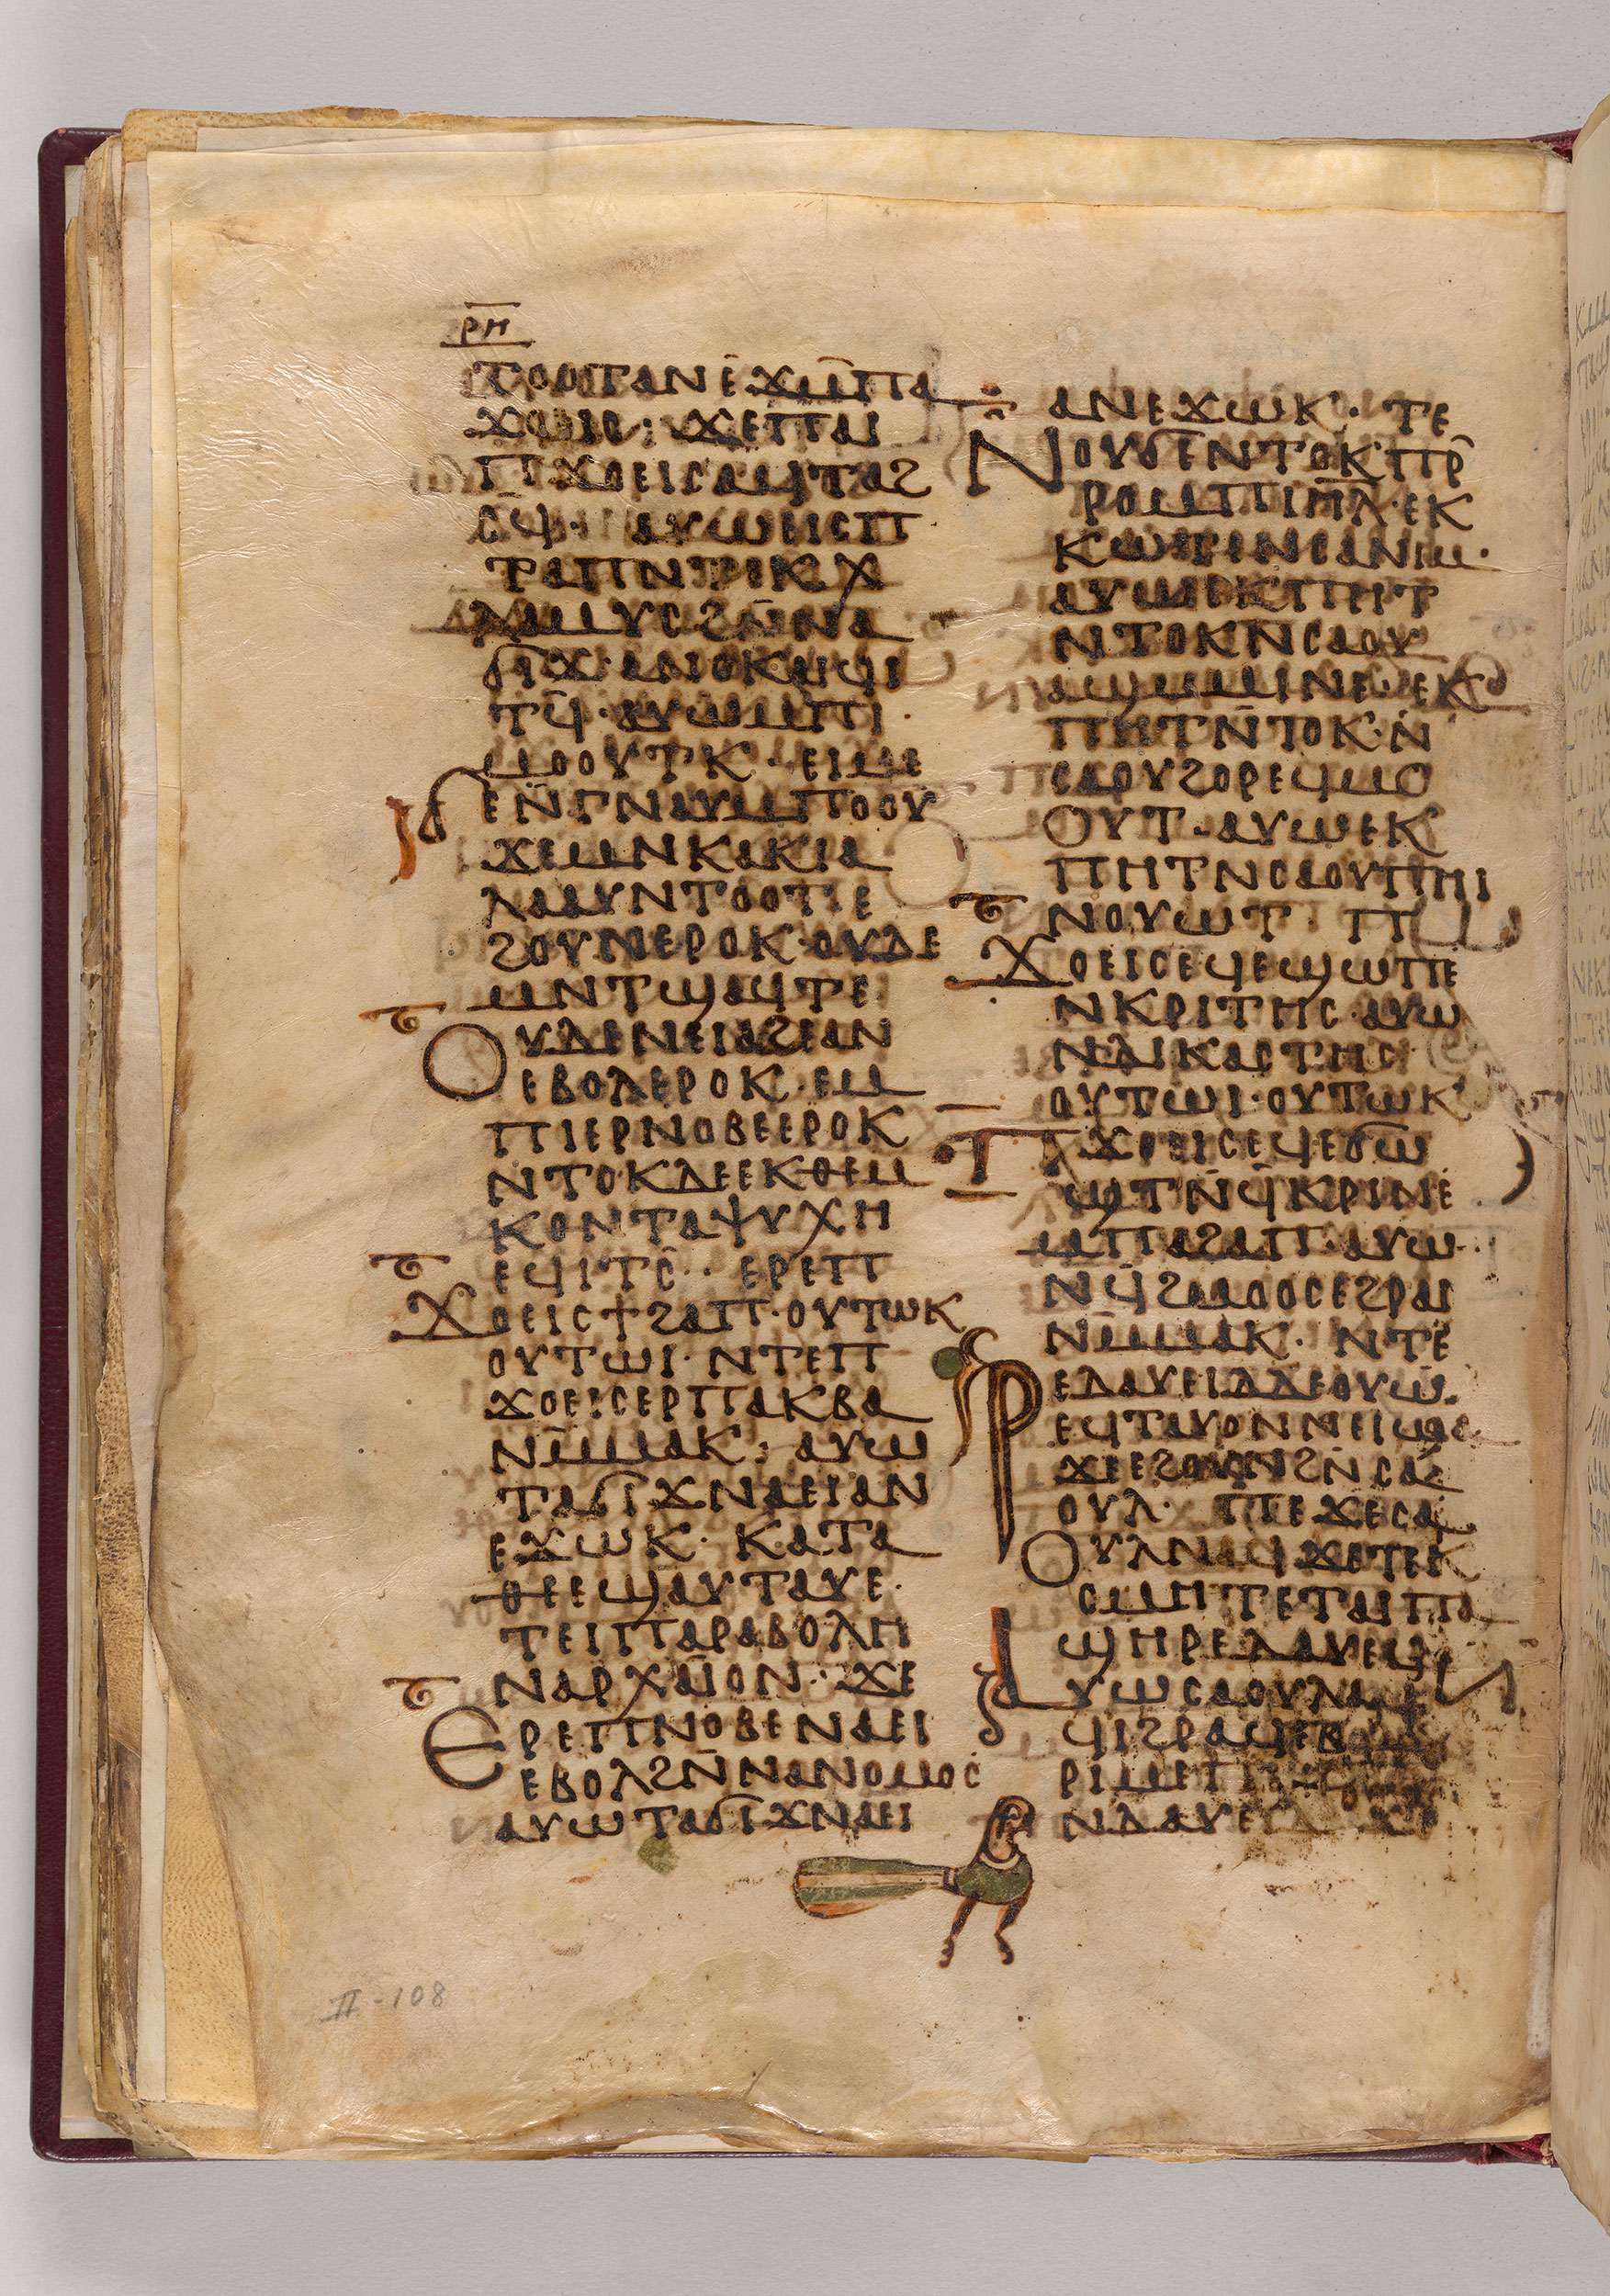 ⲣⲏ
ⲧⲟⲟⲧⲁⲛⲉϫⲙⲡⲁ
ϫⲟⲉⲓⲥ: ϫⲉⲡⲁⲓ
ⲡϫⲟⲉⲓⲥⲁϥⲧⲁϩ
ⲥϥ· ⲁⲩⲱⲉⲓⲥⲡ
ⲧⲁⲡⲛ̄
ϩⲛ̄ⲛⲁ
ϭⲓϫ·ⲁⲛⲟⲕⲁⲓϥⲓ
ⲧϥ̄·ⲁⲩⲱⲙⲡⲓ
ⲙⲟⲟⲩⲧⲕ· ⲉⲓⲙⲉ
ϭⲉⲛ̄ⲅⲛⲁⲩⲙⲡⲟⲟⲩ
ϫⲉⲙⲛⲕⲁⲕⲓⲁ
ⲗⲁⲁⲩⲛⲧⲟⲟⲧⲉ
ϩⲟⲩⲛⲉⲣⲟⲕ·ⲟⲩⲇⲉ
ⲙⲛⲧϣⲁϥⲧⲉ
ⲟⲩⲇⲉⲛⲉⲓⲁϩⲉⲁⲛ
ⲉⲃⲟⲗⲉⲣⲟⲕ·ⲉⲙ
ⲡⲓⲉⲣⲛⲟⲃⲉⲉⲣⲟⲕ
ⲛⲧⲟⲕⲇⲉⲉⲕⲑⲉⲙ
ⲕⲟⲛⲧⲁⲯⲩⲭⲏ
ⲉϥⲓⲧⲥ̄·· ⲉⲣⲉⲡ
ϫⲟⲉⲓⲥϯϩⲁⲡ·ⲟⲩⲧⲱⲕ
ⲟⲩⲧⲱⲓ·ⲛⲧⲉⲡ
ϫⲟⲉⲓⲥⲉⲣⲡⲁⲕⲃⲁ
ⲛⲙ̄ⲙⲁⲕ: ⲁⲩⲱ
ⲧⲁϭⲓϫⲛⲁⲉⲓⲁⲛ
ⲉϫⲱⲕ· ⲕⲁⲧⲁ
ⲑⲉⲉϣⲁⲩⲧⲁⲩⲉ·
ⲧⲉⲓⲡⲁⲣⲁⲃⲟⲗⲏ
ⲛⲁⲣⲭⲁⲓⲟⲛ· ϫⲉ
ⲉⲣⲉⲡⲛⲟⲃⲉⲛⲁⲉⲓ
ⲉⲃⲟⲗϩⲛ̄ⲛⲁⲛⲟⲙⲟⲥ
ⲁⲩⲱⲧⲁϭⲓϫⲛⲁⲉⲓ
ⲁⲛⲉϫⲱⲕ· ⲧⲉ
ⲛⲟⲩϭⲉⲛⲧⲟⲕⲡⲣ̄
ⲣⲟⲙⲡⲓⲏ̄ⲗ·ⲉⲕ
ⲕⲱⲧⲉⲛⲥⲁⲛⲓⲙ·
ⲁⲩⲱⲉⲕⲡⲏⲧ
ⲛⲧⲟⲕⲛⲥⲁⲟⲩ
ⲉⲕ
ⲡⲏⲧⲛ̄ⲧⲟⲕ·ⲛ̇
ⲥⲁⲟⲩϩⲟⲣⲉϥⲙⲟ
ⲟⲩⲧ·ⲁⲩⲱⲉⲕ
ⲡⲏⲧⲛⲥⲁⲟⲩⲡⲏⲓ
ⲛⲟⲩⲱⲧ· ⲡ
ϫⲟⲉⲓⲥⲉϥⲉϣⲱⲡⲉ
ⲛⲕⲣⲓⲧⲏⲥ·ⲁⲩⲱ
ⲛⲇⲓⲕⲁⲥⲧⲏⲥ
ⲟⲩⲧⲱⲓ·ⲟⲩⲧⲱⲕ
ⲡϫⲟⲉⲓⲥⲉϥⲉϭⲱ
ϣⲧⲛ̄ϥ̄ⲕⲣⲓⲛⲉ
ⲙⲡⲁϩⲁⲡ·ⲁⲩⲱ
ⲛϥ̄ϩⲙⲟⲟⲥⲉϩⲣⲁⲓ
ⲛⲙ̄ⲙⲁⲕ· ⲛⲧⲉ
ⲣⲉⲇⲁⲩⲉⲓⲇⲇⲉⲟⲩⲱ·
ⲉϥⲧⲁⲩⲟⲛⲛⲉⲓϣⲁ
ϫⲉⲉϩⲟⲩⲛϩⲛ̄ⲥⲁ
ⲟⲩⲗ· ⲡⲉϫⲉⲥⲁ
ⲟⲩⲗⲛⲁϥϫⲉⲧⲉⲕ
ⲥⲙⲏⲧⲉⲧⲁⲓⲡⲁ
ϣⲏⲣⲉⲇⲁⲩⲉⲓⲇ
ⲁⲩⲱⲥⲁⲟⲩⲗⲁϥ
ϥⲓϩⲣⲁϥⲉⲃ
ⲣⲓⲙⲉ
ⲛⲇⲁⲩⲉⲓⲇ ϫⲉ
II-108